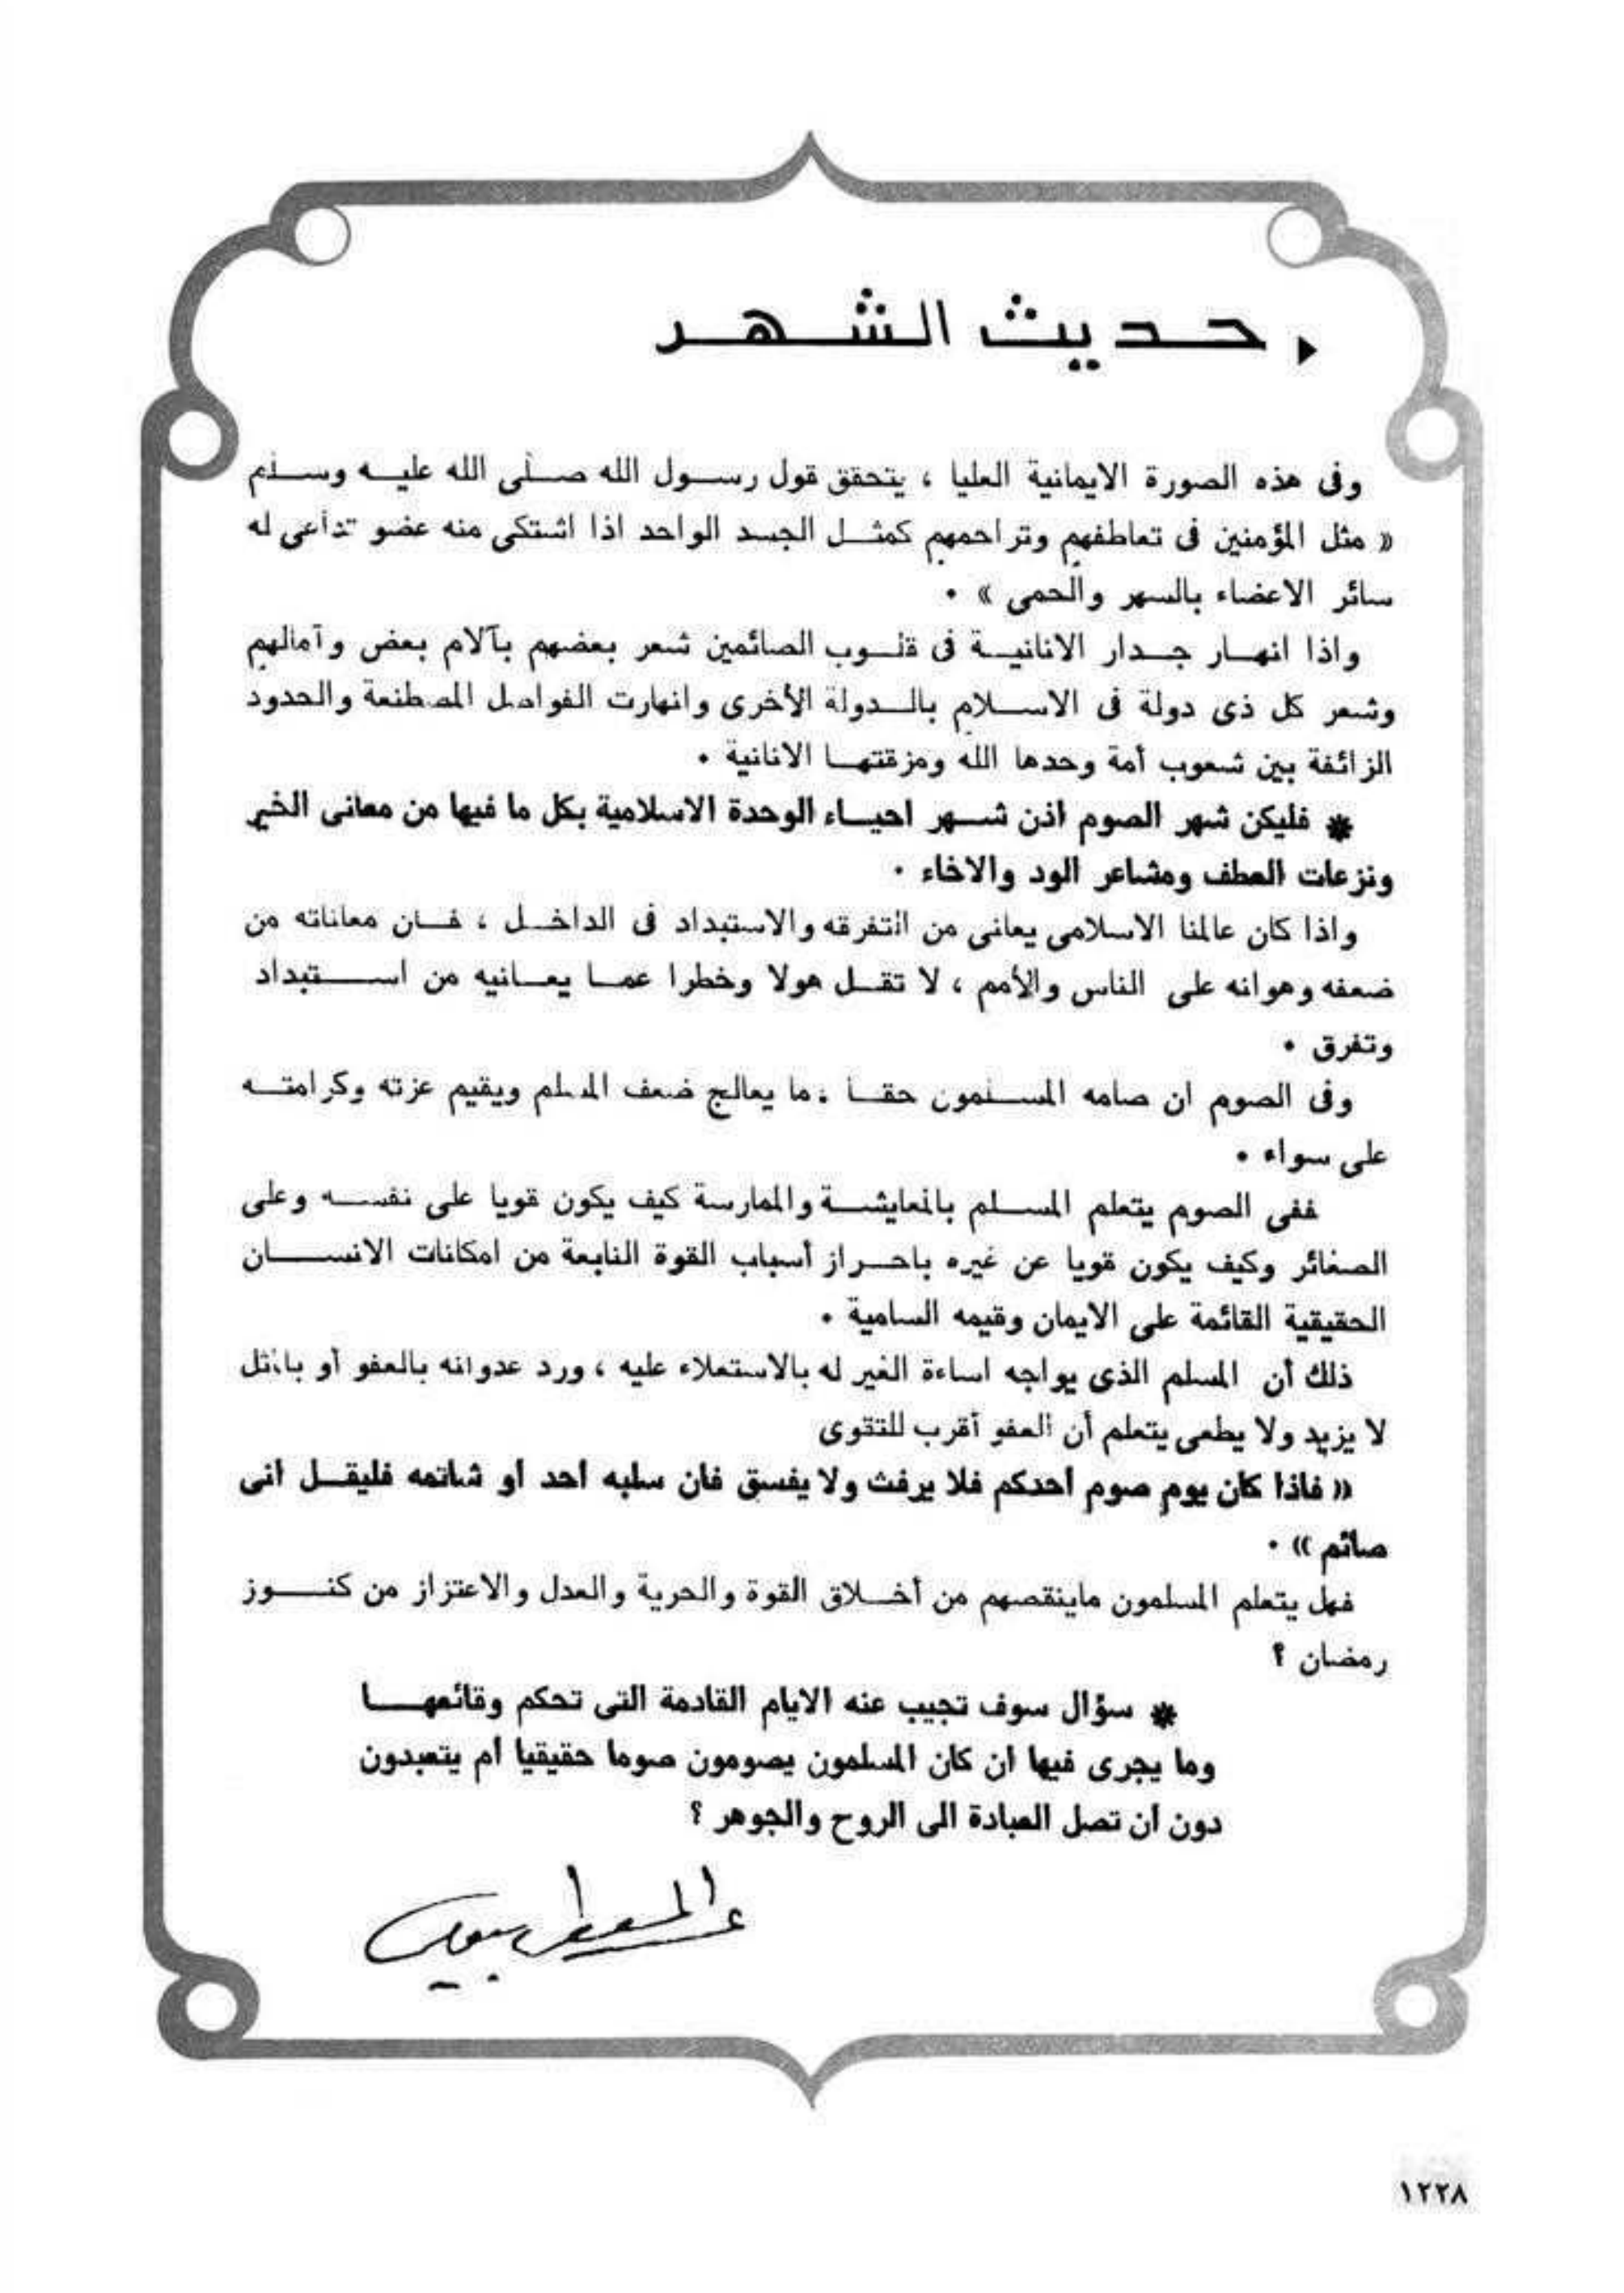 حديث الشهر
وفى هذه الصورة الايمانية العليا ، يتحقق قول رسول الله صلى الله عليه وسلم
« مثل المؤمنين فى تعاطفهم وتراحمهم كمثل الجسد الواحد اذا اشتكى منه عضو تداعى له
سائر الاعضاء بالسهر والحمى » .
واذا انهار جدار الانانية فى قلوب الصائمين شعر بعضهم بآلام بعض وآمالهم
وشعر كل ذى دولة فى الاسلام بالدولة الأخرى وانهارت الفواصل المصطنعة والحدود
الزائفة بين شعوب أمة وحدها الله ومزقتها الانانية .
* فليكن شهر الصوم اذن شهر احياء الوحدة الاسلامية بكل ما فيها من معانى الخير
ونزعات العطف ومشاعر الود والاخاء .
واذا كان عالمنا الاسلامى يعانى من التفرقه والاستبداد فى الداخل ، فان معاناته من
ضعفه وهوانه على الناس والأمم ، لا تقل هولا وخطرا عما يعانيه من استبداد
وتفرق .
وفى الصوم ان صامه المسلمون حقا ، ما يعالج ضعف المسلم ويقيم عزته وكرامته
على سواء .
ففى الصوم يتعلم المسلم بالمعايشة والممارسة كيف يكون قويا على نفسه وعلى
الصغائر وكيف يكون قويا عن غيره باحراز أسباب القوة النابعة من امكانات الانسان
الحقيقية القائمة على الايمان وقيمه السامية .
ذلك أن المسلم الذى يواجه اساءة الغير له بالاستعلاء عليه ، ورد عدوانه بالعفو أو بالمثل
لا يزيد ولا يطعى يتعلم أن العفو أقرب للتقوى
« فاذا كان يوم صوم أحدكم فلا يرفث ولا يفسق فان سابه أحد أو شاتمه فليقل انى
صائم » .
فهل يتعلم المسلمون ماينقصهم من أخلاق القوة والحرية والعدل والاعتزاز من كنوز
رمضان ؟
* سؤال سوف تجيب عنه الايام القادمة التى تحكم وقائعها
وما يجرى فيها ان كان المسلمون يصومون صوما حقيقيا أم يتعبدون
دون أن تصل العبادة الى الروح والجوهر ؟
١٢٢٨